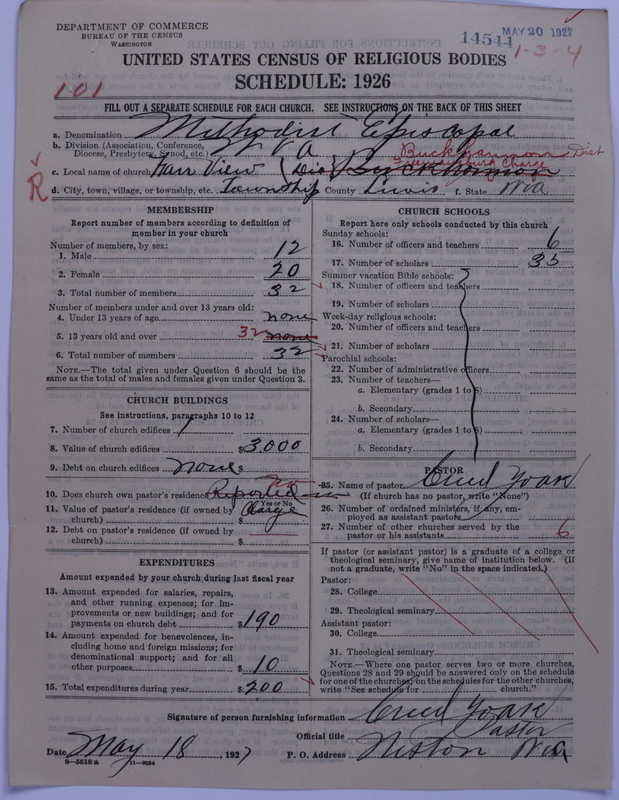 DEPARTMENT OF COMMERCE
BUREAU OF THE CENSUS
WASHINGTON
14544
MAY 20 1927
1-3-4
UNITED STATES CENSUS OF RELIGIOUS BODIES
SCHEDULE: 1926
101
FILL OUT A SEPARATE SCHEDULE FOR EACH CHURCH. SEE INSTRUCTIONS ON THE BACK OF THIS SHEET
a. Denomination Methodist Episcopal
b. Division (Association, Conference, Diocese, Presbytery, Synod, etc.) W Va Buckhannon Dist
c. Local name of church Farr View (Dis) Buckhannon Charge
R
d. City, town, village, or township, etc. Township County Lewis f. State W Va
MEMBERSHIP
Report number of members according to definition of member in your church
Number of members, by sex:
1. Male 12
2. Female 20
3. Total number of members 32
Number of members under and over 13 years old:
4. Under 13 years of age none
5. 13 years old and over 32 none
6. Total number of members 32
NOTE.—The total given under Question 6 should be the same as the total of males and females given under Question 3.
CHURCH BUILDINGS
See instructions, paragraphs 10 to 12
7. Number of church edifices 1
8. Value of church edifices $3,000
9. Debt on church edifices none $
10. Does church own pastor's residence? Reported
Yes or No
11. Value of pastor's residence (if owned by church) $ Charge
12. Debt on pastor's residence (if owned by church) $
EXPENDITURES
Amount expended by your church during last fiscal year
13. Amount expended for salaries, repairs, and other running expenses; for improvements or new buildings; and for payments on church debt $190
14. Amount expended for benevolences, including home and foreign missions; for denominational support; and for all other purposes $10
15. Total expenditures during year $200
CHURCH SCHOOLS
Report here only schools conducted by this church
Sunday schools:
16. Number of officers and teachers 6
17. Number of scholars 35
Summer vacation Bible schools:
18. Number of officers and teachers
19. Number of scholars
Week-day religious schools:
20. Number of officers and teachers
21. Number of scholars
Parochial schools:
22. Number of administrative officers
23. Number of teachers—
a. Elementary (grades 1 to 8)
b. Secondary
24. Number of scholars—
a. Elementary (grades 1 to 8)
b. Secondary
PASTOR
25. Name of pastor Creed Yoak
(If church has no pastor, write "None")
26. Number of ordained ministers, if any, employed as assistant pastors
27. Number of other churches served by the pastor or his assistants 6
If pastor (or assistant pastor) is a graduate of a college or theological seminary, give name of institution below. (If not a graduate, write "No" in the space indicated.)
Pastor:
28. College
29. Theological seminary
Assistant pastor:
30. College
31. Theological seminary
NOTE.—Where one pastor serves two or more churches, Questions 28 and 29 should be answered only on the schedule for one of the churches; on the schedules for the other churches, write "See schedule for church."
Signature of person furnishing information Creed Yoak
Official title Pastor
Date May 18, 1927 P. O. Address Weston W Va
8—5518 a 11—9054